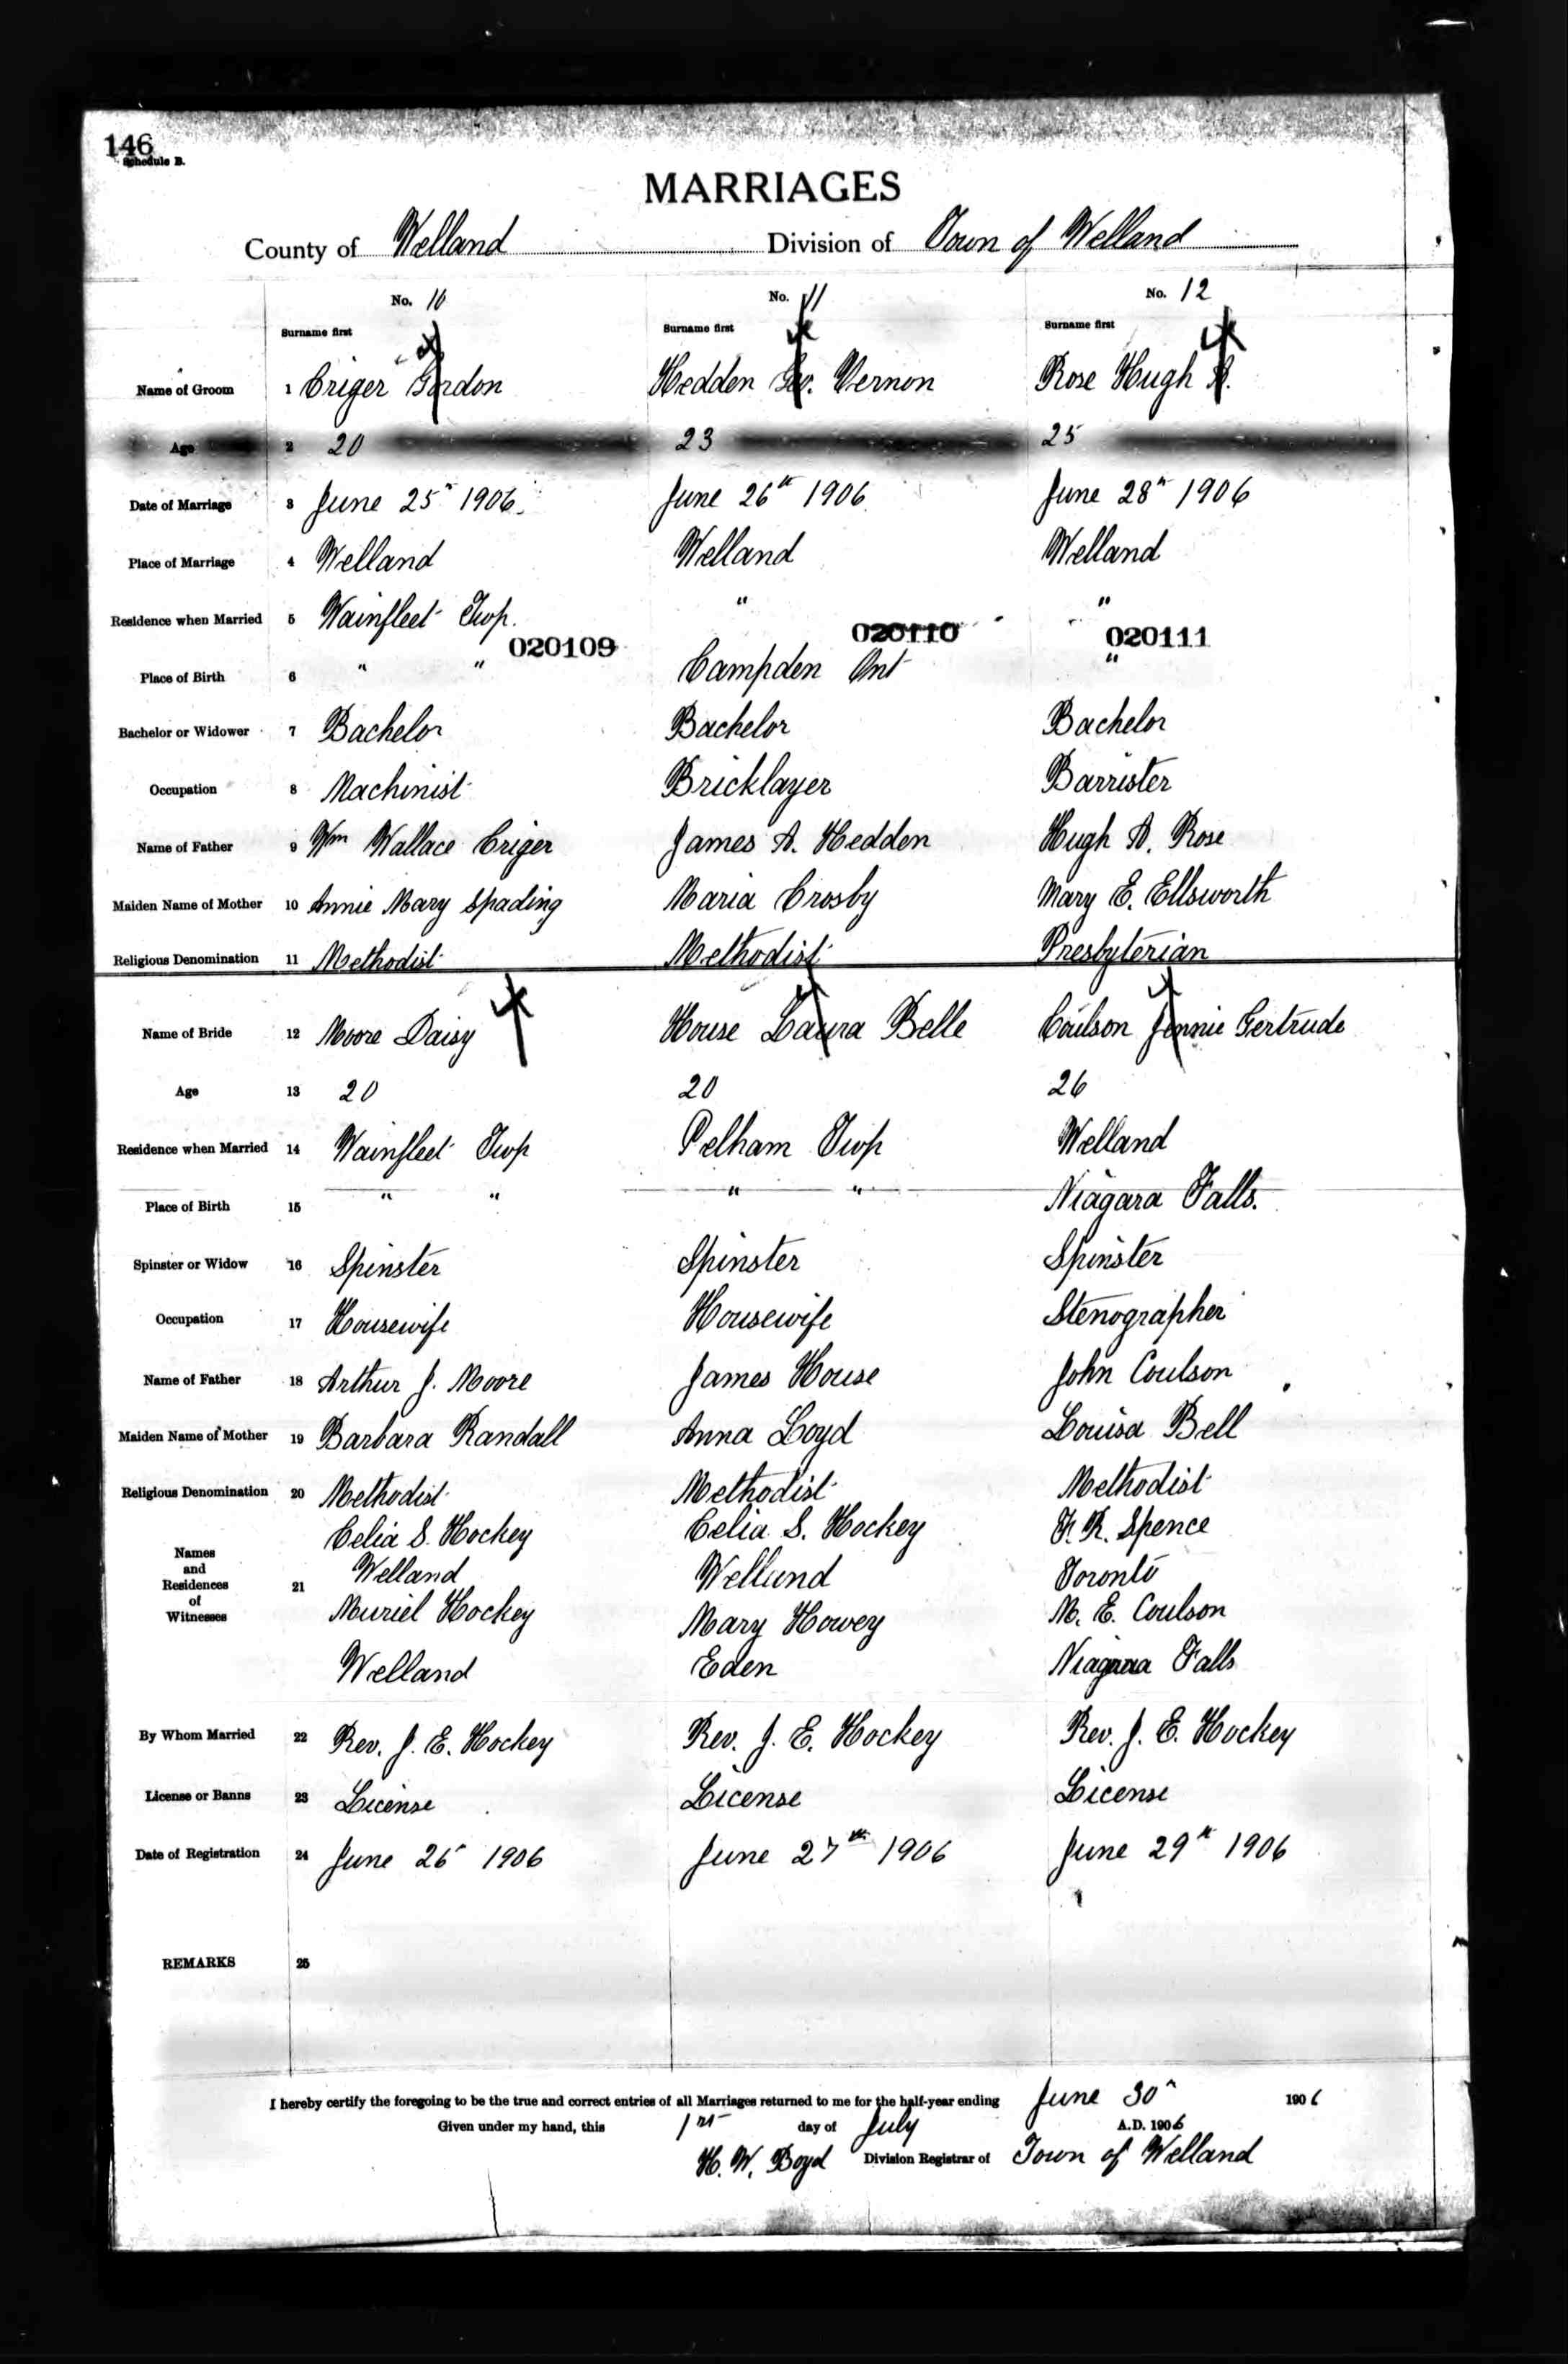 146
Schedule B.
MARRIAGES
County of Welland Division of Town of Welland
No. 10 No. 11 No. 12
Surname first Surname first Surname first
Name of Groom 1 Criger Gordon Hedden Geo. Vernon Rose Hugh A.
Age 2 20 23 25
Date of Marriage 3 June 25" 1906. June 26th 1906. June 28th 1906
Place of Marriage 4 Welland Welland Welland
Residence when Married 5 Wainfleet Twp. " "
020109 020110 020111
Place of Birth 6 " " Campden Ont "
Bachelor or Widower 7 Bachelor Bachelor Bachelor
Occupation 8 Machinist Bricklayer Barrister
Name of Father 9 Wm Wallace Criger James A. Hedden Hugh A. Rose
Maiden Name of Mother 10 Annie Mary Spading Maria Crosby Mary E. Ellsworth
Religious Denomination 11 Methodist Methodist Presbyterian
Name of Bride 12 Moore Daisy House Laura Belle Coulson Jennie Gertrude
Age 13 20 20 26
Residence when Married 14 Wainfleet Twp Pelham Twp Welland
Place of Birth 15 " " " " Niagara Falls.
Spinster or Widow 16 Spinster Spinster Spinster
Occupation 17 Housewife Housewife Stenographer
Name of Father 18 Arthur J. Moore James House John Coulson
Maiden Name of Mother 19 Barbara Randall Anna Loyd Louisa Bell
Religious Denomination 20 Methodist Methodist Methodist
Names and Residences of Witnesses 21 Celia S. Hockey Celia S. Hockey F. R. Spence
Welland Welland Toronto
Muriel Hockey Mary Howey M. E. Coulson
Welland Eden Niagara Falls
By Whom Married 22 Rev. J. E. Hockey Rev. J. E. Hockey Rev. J. E. Hockey
License or Banns 23 License License License
Date of Registration 24 June 26" 1906 June 27th 1906 June 29th 1906
REMARKS 25
I hereby certify the foregoing to be the true and correct entries of all Marriages returned to me for the half-year ending June 30" 1906
Given under my hand, this 1st day of July A.D. 1906
H. W. Boyd Division Registrar of Town of Welland